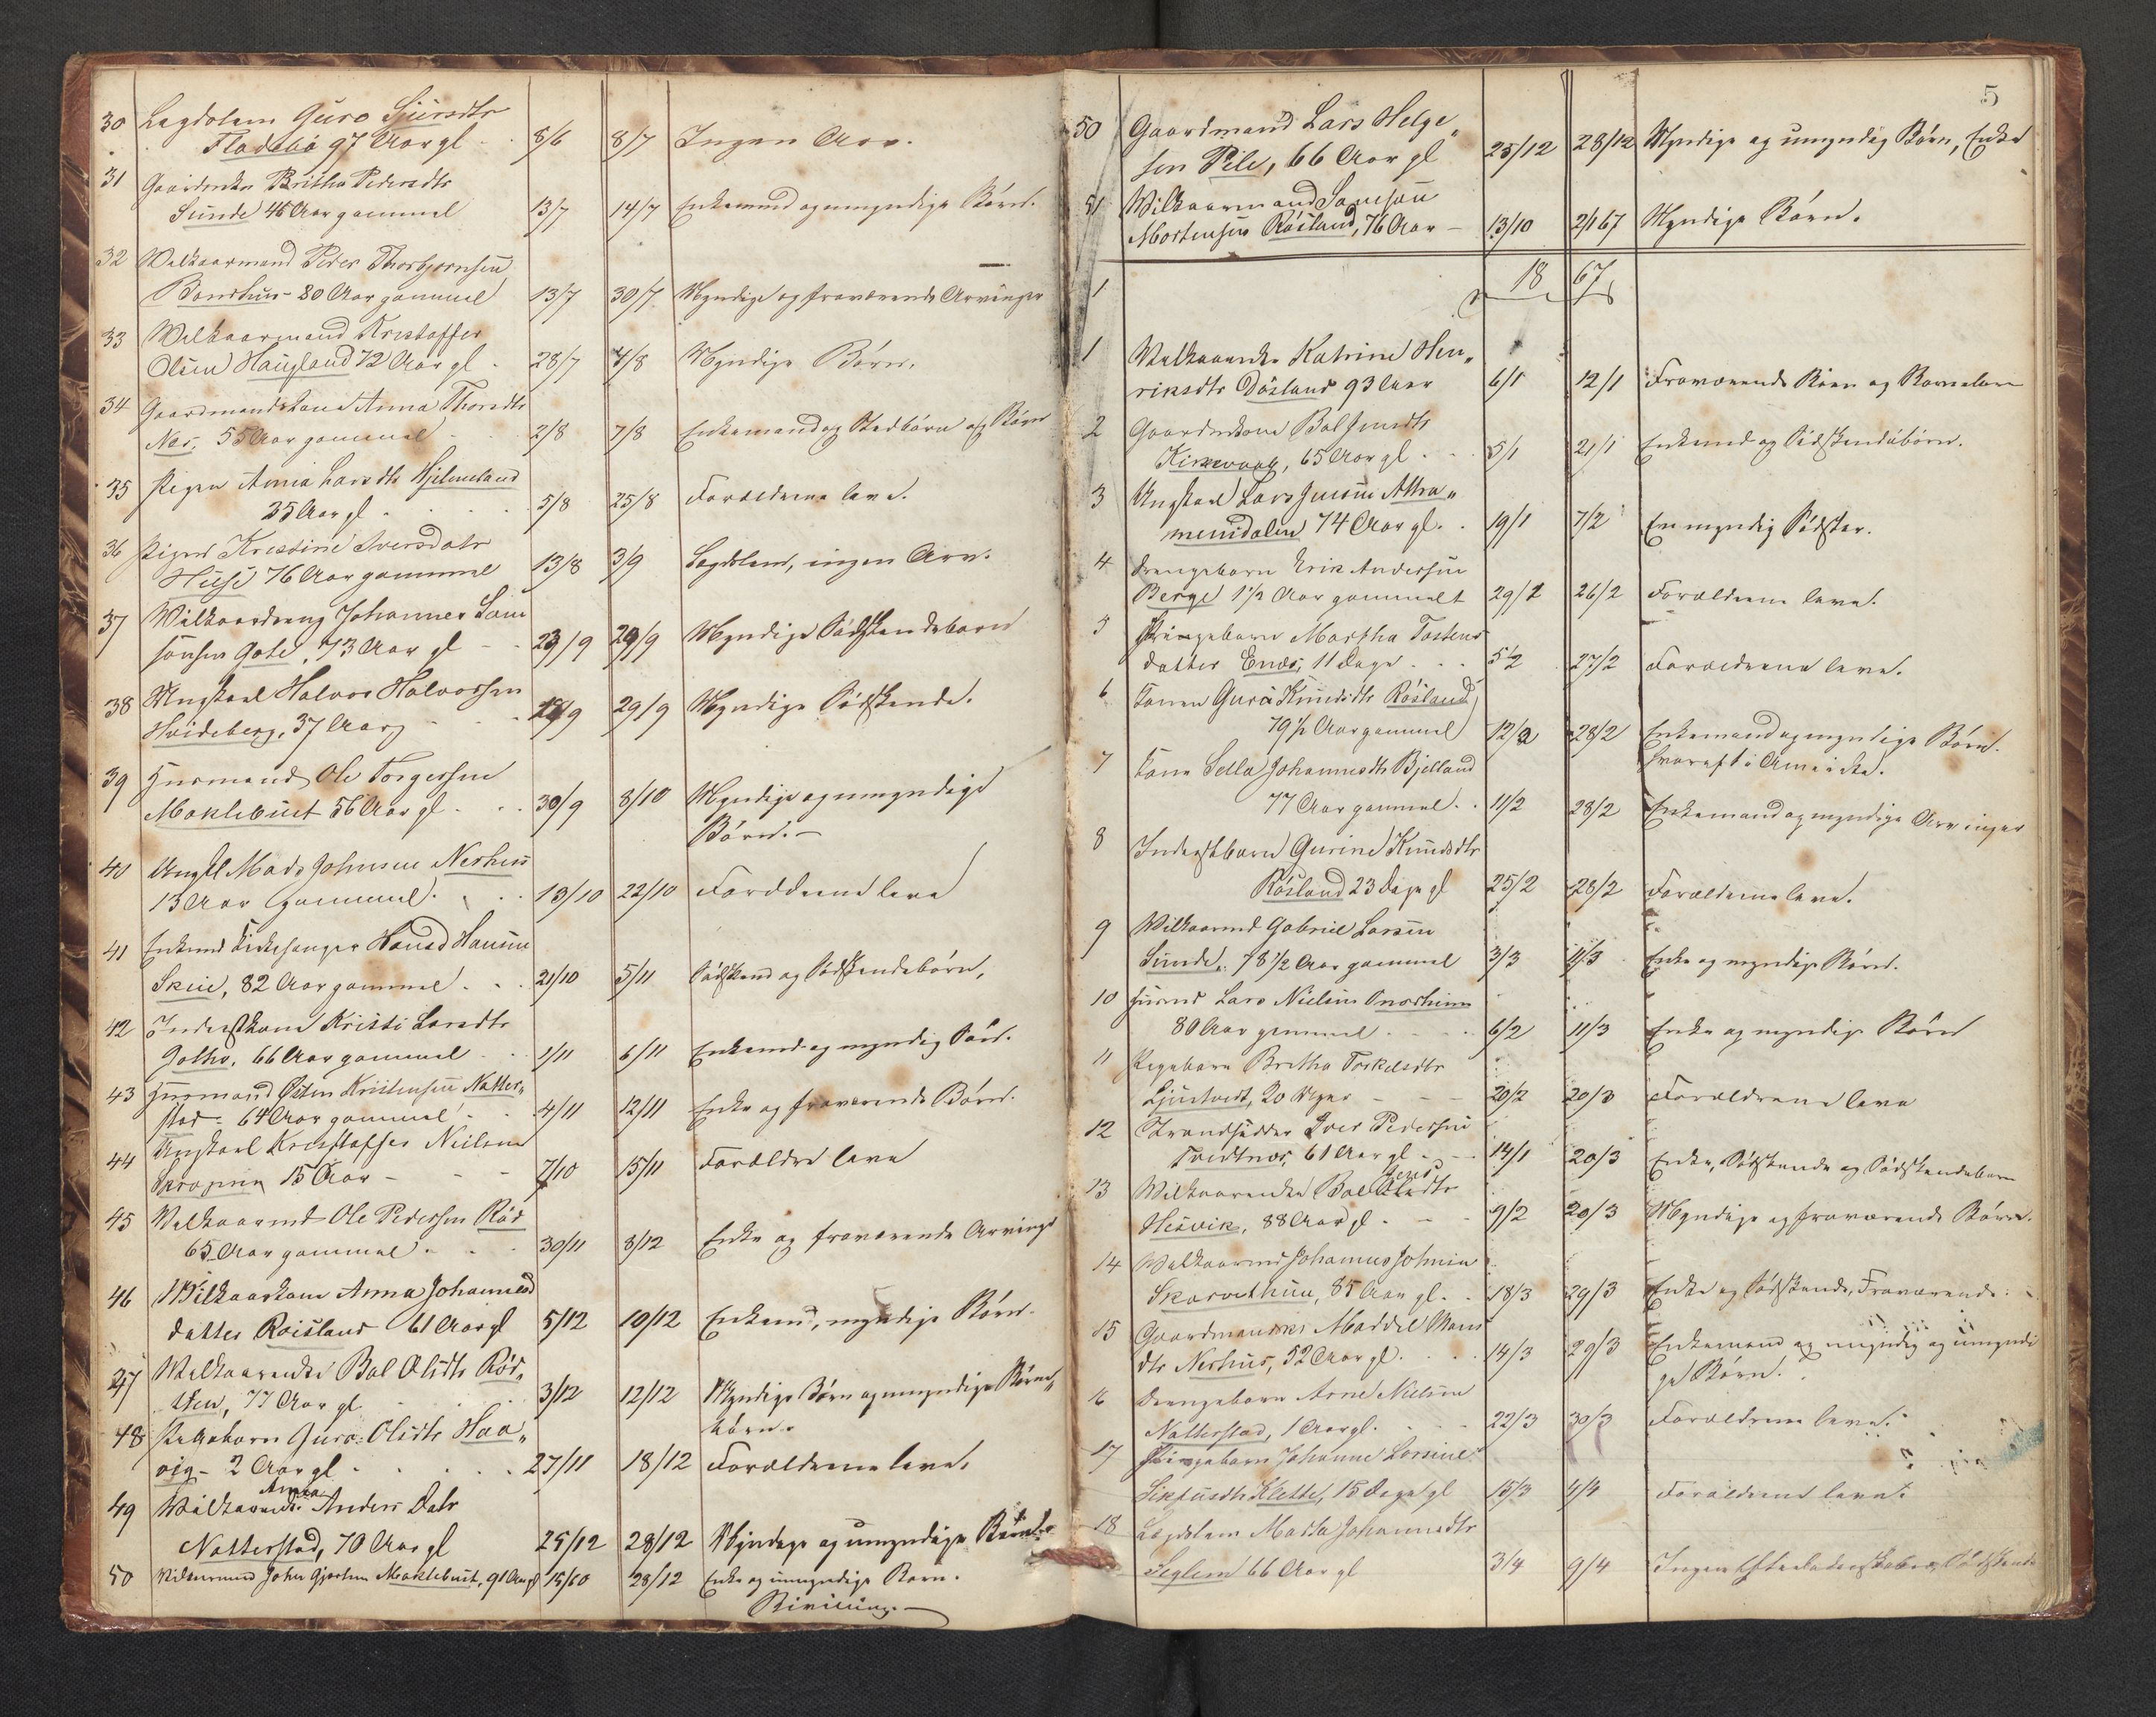 30 Lægdslem Guro Sjursdtr
Fladebø 97 Aar gl 8/6 8/7 Ingen Arv.
31 Gaardenke Britha Pedersdtr
Sunde 45 Aar gammel 13/7 14/7 Enkemand og umyndige Børn.
32 Vilkaarmand Peder Thorbjørnsen
Bondhus - 80 Aar gammel 13/7 30/7 Myndige og fraværende Arvinger
33 Vilkaarmand Kristoffer
Olsen Haugland 72 Aar gl 28/7 7/8 Myndige Børn.
34 Gaardmandskone Anna Thorsdtr
Nes, 55 Aar gammel 2/8 7/8 Enkemand og Stedbørn og Børn
35 Pigen Anna Larsdtr Hjelmeland
25 Aar gl 5/8 25/8 Forældrene leve.
36 Pigen Kristine Iversdatr
Huse 76 Aar gammel 13/8 3/9 Lægdslem, ingen Arv.
37 Vilkaardreng Johannes Sam
sonsen Gote, 73 Aar gl 23/9 29/9 Myndige Sødskendebørn
38 Ungkarl Halvor Halvorsen
Hvideberg, 37 Aar 19/9 29/9 Myndige Sødskende.
39 Husmand Ole Torgersen
Moklebust 56 Aar gl 30/9 8/10 Myndige og umyndige
Børn. -
40 Ungkl Mads Johnsen Neshus
13 Aar gammel. 13/10 22/10 Forældrene leve
41 Enkemd Kirkesanger Hans Hansen
Skeie, 82 Aar gammel 21/10 5/11 Sødskend og Sødskendebørn.
42 Inderstkone Kristi Larsdtr
Jotho, 66 Aar gammel 1/11 6/11 Enkemd og myndig Søn.
43 Husmand Østen Kristensen Natter„
stad - 64 Aar gammel 4/11 12/11 Enke og fraværende Børn.
44 Ungkarl Kristoffer Nielsen
15 Aar - 7/10 15/11 Forældre leve
45 Vilkaarmd Ole Pedersen Rød
65 Aar gammel 30/11 8/12 Enke og fraværende Arvinge
46 Vilkaarkone Anna Johannes
datter Røisland 61 Aar gl 5/12 10/12 Enkemd, myndige Børn.
47 Vilkaarenke Bol Olsdtr Rød„
sten, 77 Aar gl 3/12 12/12 Myndige Børn og umyndige Børne„
børn.
48 Pigebarn Guro Olsdtr Haa„
vig - 2 Aar gl 27/11 18/12 Forældrene leve.
Anna
49 Vilkaarenke Anders Datr
Natterstad, 70 Aar gl 25/12 28/12 Myndige og umyndige Børn
50 Vilkaarmand John Gjertsen Moklebust, 91 Aar gl 15/10 28/12 Enke og umyndige Børn.
5
50 Gaardmand Lars Helge„
sen Pile, 66 Aar gl 25/12 28/12 Myndige og umyndig Børn, Enke
51 Vilkaarmand Samson
Mortensen Røisland, 76 Aar - 13/10 2/1 67 Myndige Børn.
1 18 67
1 Vilkaarenke Katrine Hen„
riksdtr Døsland 93 Aar 6/1 12/1 Fraværende Børn og Børnebørn
2 Gaardskone Bol Jensdtr
Kirkevaag, 65 Aar gl 5/1 21/1 Enkemd og Sødskendebørn.
3 Ungkarl Lars Jensen Attra„
mensdalen 74 Aar gl. 19/1 7/2 En myndig Søster.
4 Drengebarn Erik Andersen
Berge 1 1/2 Aar gammelt 29/1 26/2 Forældrene leve.
5 Pigebarn Martha Tostens
datter Enæs, 11 Dage 5/2 27/2 Forældrene leve.
6 Konen Guro Knudsdtr Røsland
79 1/2 Aar gammel 12/2 28/2 Enkemand og myndige Børn.
hvoraf 1 i Amerika.
7 Kone Sella Johannesdtr Bjelland
77 Aar gammel. 11/2 28/2 Enkemand og myndige Arvinger
8 Inderstbarn Gurine Knudsdtr
Røsland 23 Dage gl 25/2 28/2 Forældrene leve.
9 Vilkaarmd Gabriel Larsen
Sunde, 78 1/2 Aar gammel 3/3 11/3 Enke og myndige Børn.
10 Husmd Lars Nielsen Onarheim
80 Aar gammel 6/2 11/3 Enke og myndige Børn
11 Pigebarn Britha Torkelsdtr
Ljustvedt, 20 Uger 20/2 20/3 Forældrene leve
12 Strandsidder Iver Pedersen
Tvedtnæs, 61 Aar gl 14/1 20/3 Enke, Sødskende og Sødskendebørn
13 Vilkaarenke Bol Jensdtr
Husvik, 88 Aar gl 9/2 20/3 Myndige og fraværende Børn.
14 Vilkaarmd Johannes Johnsen
Skarvethun, 85 Aar gl. 18/3 29/3 Enke og Sødskende, Fraværende.
15 Gaardmandsk Maddel Mons
dtr Neshus, 52 Aar gl. 14/3 29/3 Enkemand og myndig og umyndi
ge Børn.
16 Drengebarn Arne Nielsen
Natterstad, 1 Aar gl. 22/3 30/3 Forældrene leve.
17 Pigebarn Johanne Larsine
Klette, 15 Dage gl 15/3 4/4 Forældrene leve.
18 Lægdslem Marta Johannesdtr
Seglem 66 Aar gl 3/4 9/4 Ingen Sødskende